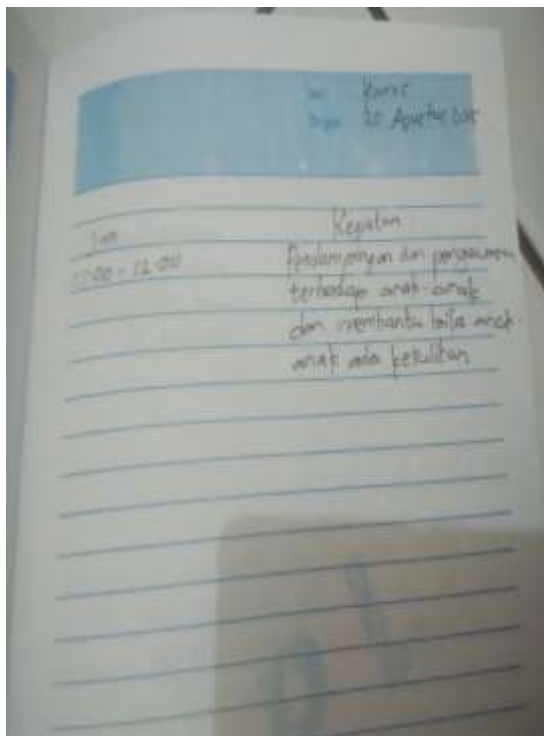 Kamis
20 Agustus
Jam Kegiatan
12.00 Pendampingan dan pengawasan
terhadap anak-anak
dan membantu bila anak-
anak ada kesulitan